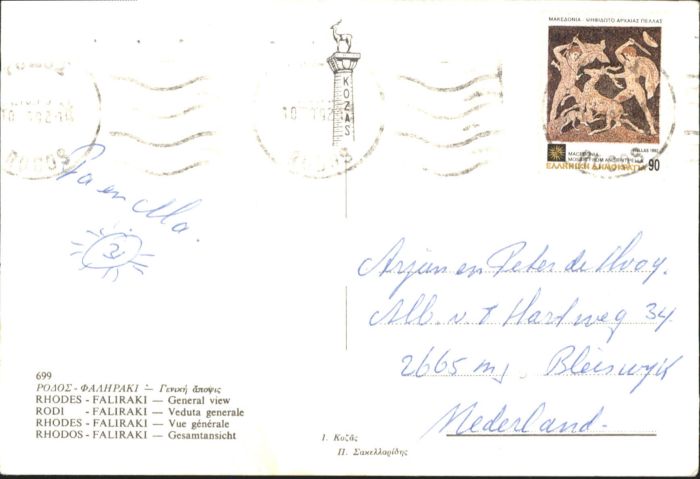 ΜΑΚΕΔΟΝΙΑ - ΨΗΦΙΔΩΤΟ ΑΡΧΑΙΑΣ ΠΕΛΛΑΣ
MACEDONIA
MOSAIC FROM ANCIENT PELLA
HELLAS 1992
ΕΛΛΗΝΙΚΗ ΔΗΜΟΚΡΑΤΙΑ 90
KOZAS
Pa en Ma.
31
Arjan en Peter de
Alb. v. t Hartweg 34
2665 mj, Bleiswijk
Nederland.
699
ΡΟΔΟΣ - ΦΑΛΗΡΑΚΙ — Γενική ἄποψις
RHODES - FALIRAKI — General view
RODI - FALIRAKI — Veduta generale
RHODES - FALIRAKI — Vue générale
RHODOS - FALIRAKI — Gesamtansicht
Ι. Κοζᾶς
Π. Σακελλαρίδης